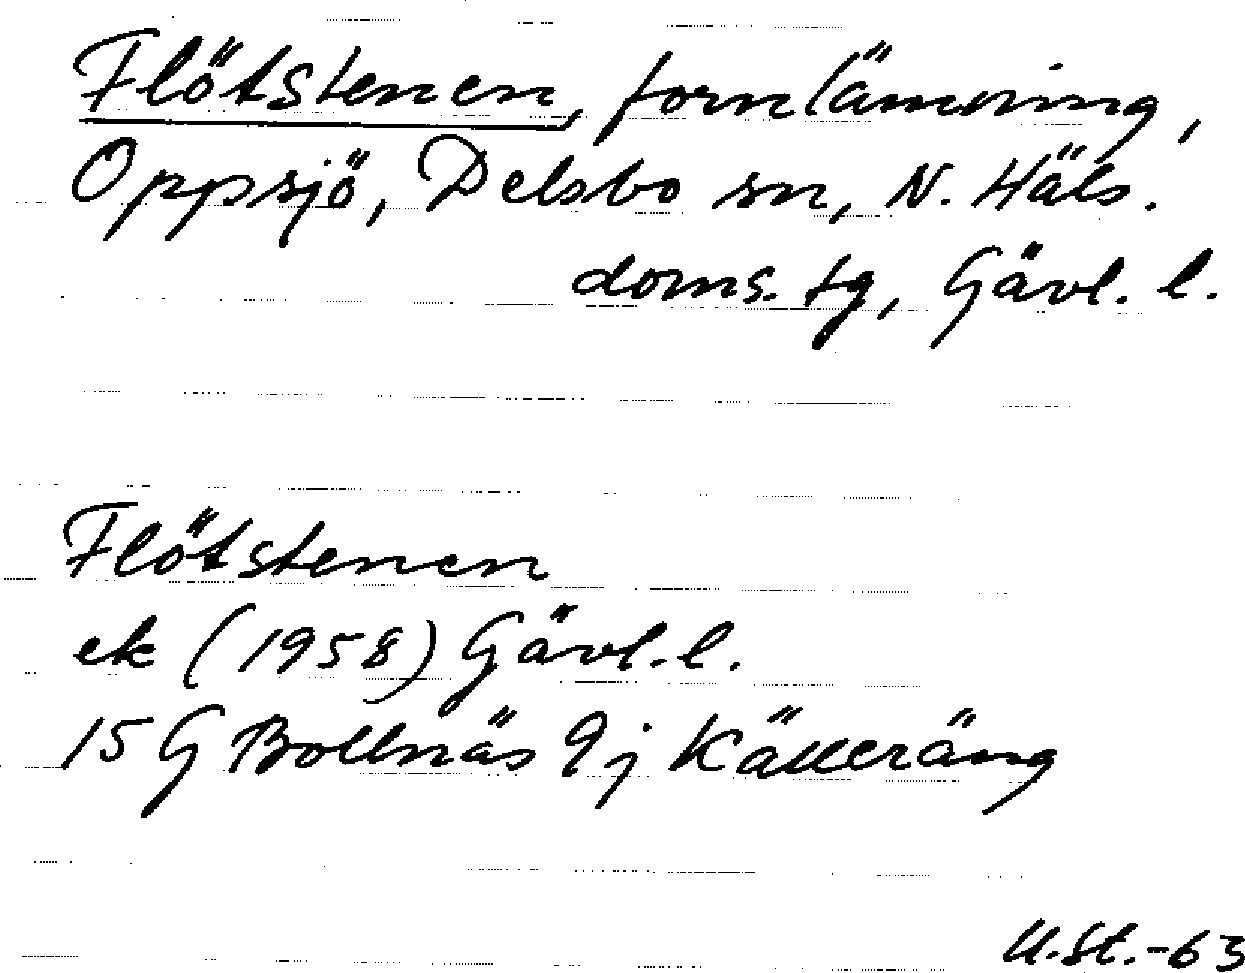 Flötstenen, fornlämning,
Oppsjö, Delsbo sn, N. Häls.
doms. tg, Gävl. l.
Flötstenen
ek (1958) Gävl. l.
15 G Bollnäs 9j Källeräng
U.St.-63